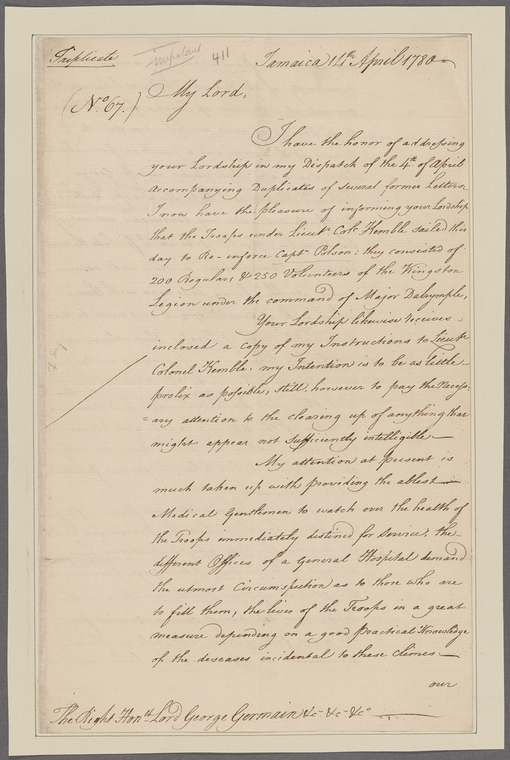 Triplicate 411 Jamaica 14th April 1780
(No. 67.) My Lord,
I have the honor of addressing
your Lordship in my Dispatch of the 4th of April
accompanying Duplicates of Several former Letters.
I now have the pleasure of informing your Lordship
that the Troops under Lieut. Colo. Kemble sailed this
day to Re-inforce Capt. Polson: they consisted of
200 Regulars & 250 Volunteers of the Kingston
Legion under the command of Major Dalrymple,
Your Lordship likewise receives
inclosed a copy of my Instructions to Lieut.
Colonel Kemble: my Intention is to be as little
prolix as possible, still, however to pay the Necess-
=ary attention to the clearing up of any thing that
might appear not Sufficiently intelligible—
My attention at present is
much taken up with providing the ablest
Medical Gentlemen to watch over the health of
the Troops immediately destined for Service, the
different Offices of a General Hospital demand
the utmost Circumspection as to those who are
to fill them, the lives of the Troops in a great
measure depending on a good Practical Knowledge
of the deseases incidental to these Climes—
our
The Right Honble. Lord George Germain &c. &c. &c.